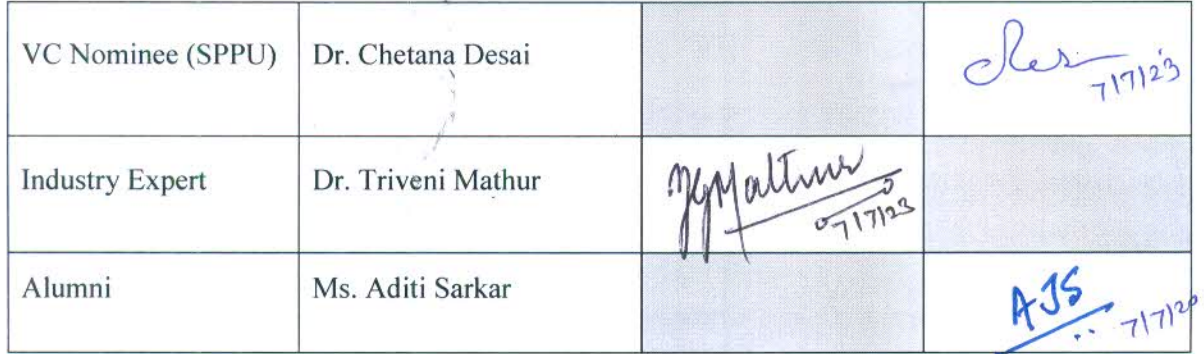 VC Nominee (SPPU) Dr. Chetana Desai
7/7/23
Industry Expert Dr. Triveni Mathur
7/7/23
Alumni Ms. Aditi Sarkar AJS